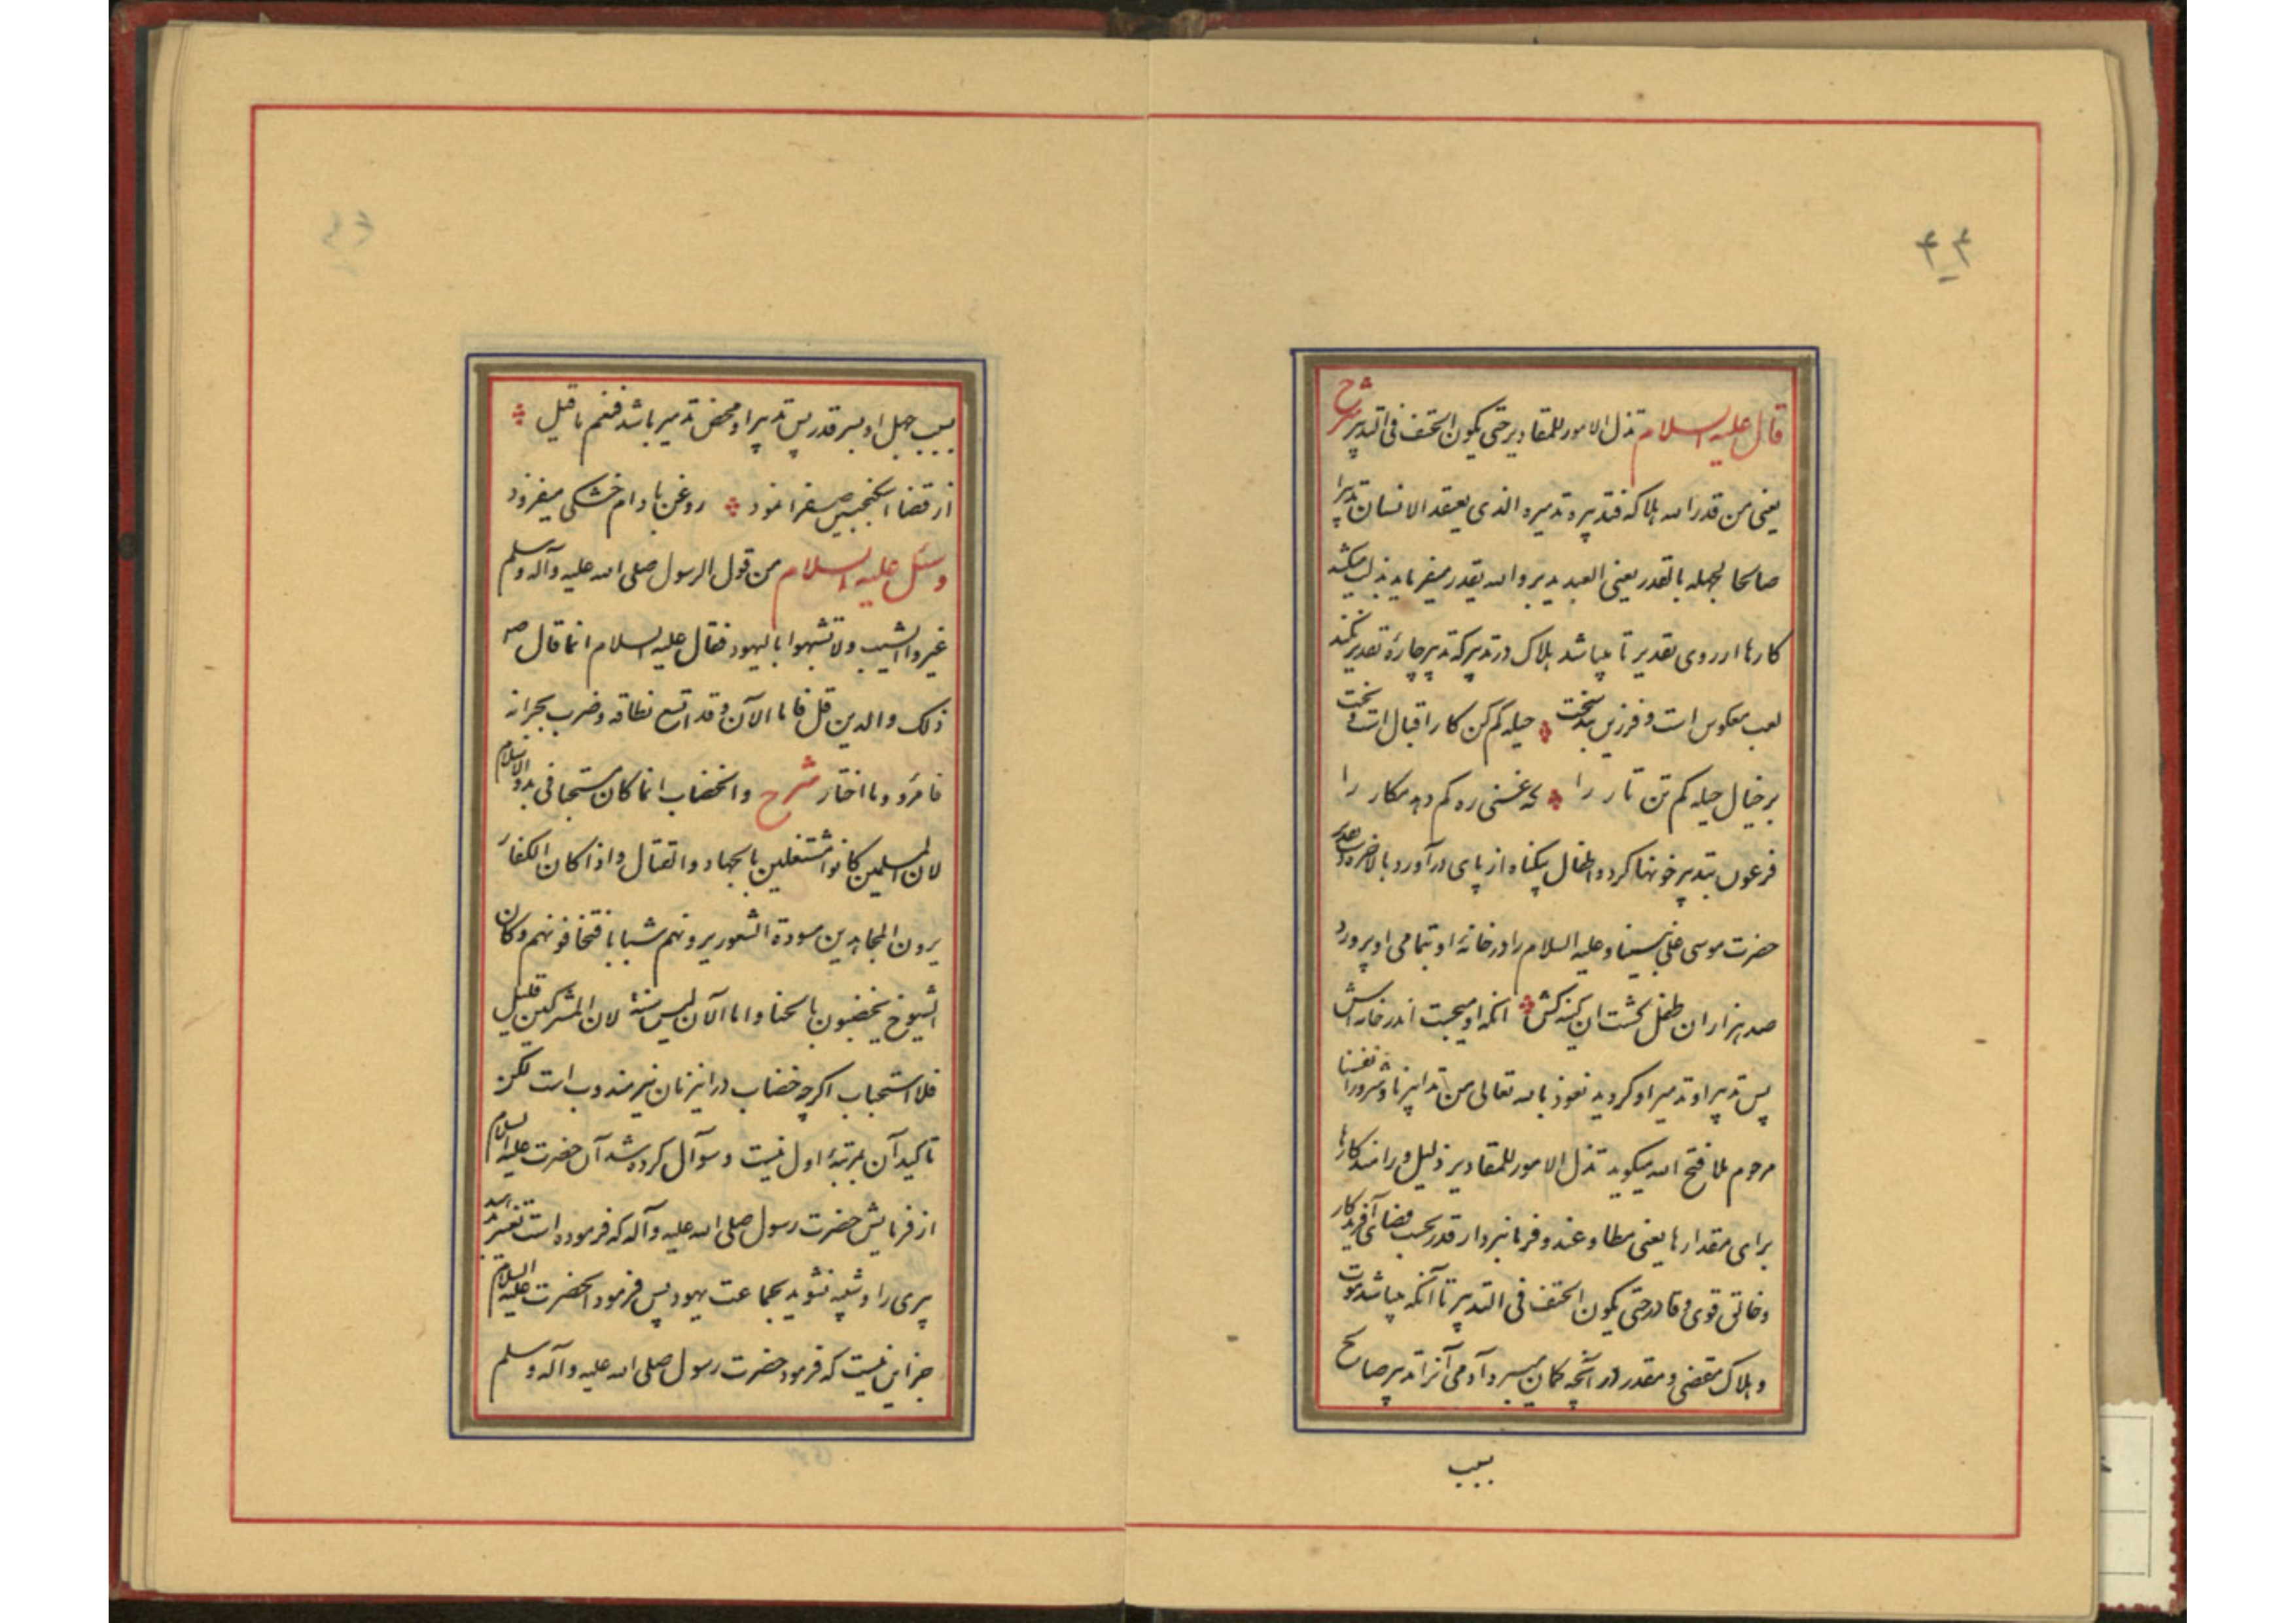 ۴۴
قال علیه السلام تذل الامور للمقادیر حتی یکون الحتف فی التدبیر شرح
یعنی من قدر الله هلاکه فتدبیره تدمیره الذی یعتقد الانسان تدبیرا
صالحا لجهله بالقدر یعنی العبد یدبر والله یقدر میفرماید
کارها از روی تقدیر تا میباشد هلاک در تدبیر که تدبیر چارهٔ تقدیر نکند
لعب معکوس است و فرزین بند سخت حیله کم کن کار اقبال است و بخت
بر خیال حیله کم تن تار را که غنی ره کم دهد مکار را
فرعون بتدبیر خونها کرد و اطفال بیکناه از پای درآورد بالاخره
حضرت موسی علی نبینا و علیه السلام را در خانهٔ او بتمامی او پرورد
صد هزاران طفل کشت ان کینه کش انکه او میجست اندر خانه اش
پس تدبیر او تدمیر او کردید نعوذ بالله تعالی من تدابیرنا و شرور انفسنا
مرحوم ملا فتح الله میکوید تذل الامور للمقادیر ذلیل و رامند کارها
برای مقدارها یعنی مطاوعند و فرمانبردار قدر بحسب قضای آفریدکار
و خالق قوی و قادر حتی یکون الحتف فی التدبیر تا آنکه میباشد موت
و هلاک مقتضی و مقدر در آنچه کمان میبرد آدمی آنرا تدبیر صالح
بسبب
بسبب جهل او بسر قدر پس تدبیر او محض تدمیر باشد فنعم ما قیل
از قضا سکنجبین صفرا نمود روغن بادام خشکی میفزود
وسئل علیه السلام من قول الرسول صلی الله علیه وآله وسلم
غیروا الشیب ولا تشبهوا بالیهود فقال علیه السلام انما قال ص
ذلک والدین قل فاما الآن وقد اتسع نطاقه وضرب بجرانه
فامرؤ وما اختار شرح والخضاب انما کان مستحبا فی بدو الاسلام
لان المسلمین کانوا مشتغلین بالجهاد والقتال واذا کان الکفار
یرون المجاهدین مسودة الشعور یرونهم شبابا فتخافونهم وکان
الشیوخ یخضبون بالحنا واما الآن لیس سنة لان المشرکین قلیل
فلا استحباب اکرچه خضاب در اینزمان نیز مندوب است لکن
تاکید آن بمرتبهٔ اول نیست و سوآل کرده شد آن حضرت علیه السلام
از فرمایش حضرت رسول صلی الله علیه وآله که فرموده است تغییر
پیری را و شبیه نشوید بجماعت یهود پس فرمود انحضرت علیه السلام
جز این نیست که فرمود حضرت رسول صلی الله علیه وآله وسلم